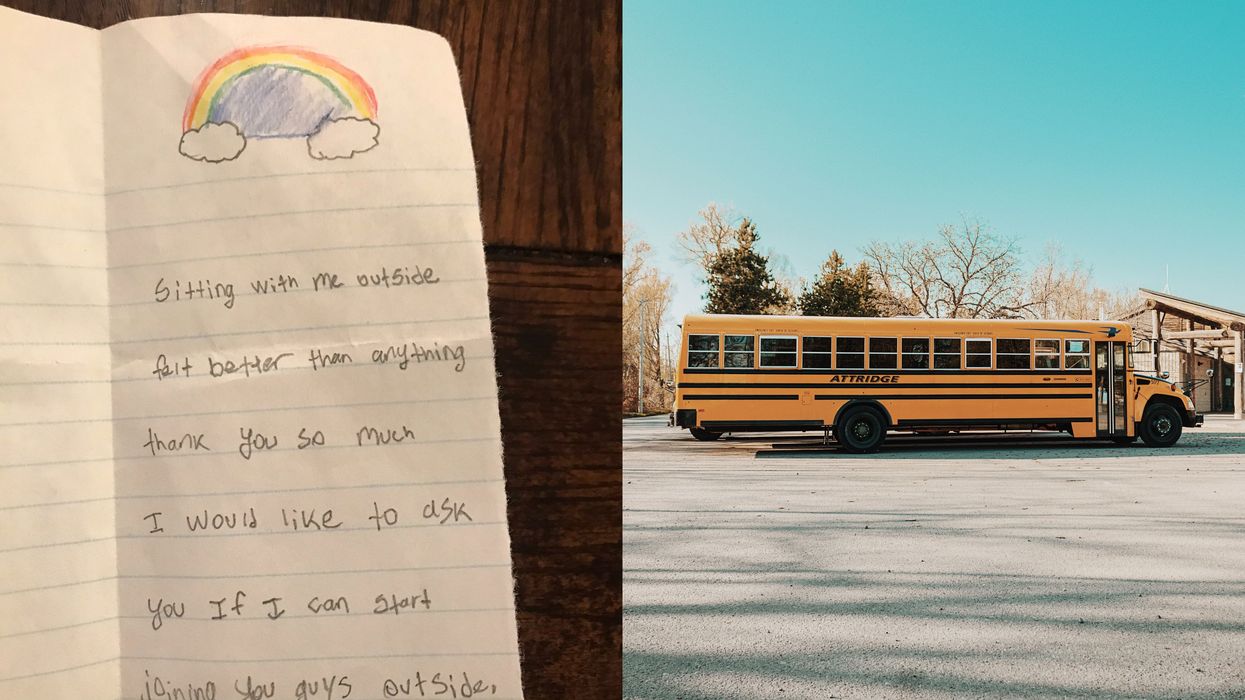 Sitting with me outside
felt better than anything
thank you so much
I would like to ask
you If I can start
joining you guys outside.
ATTRIDGE